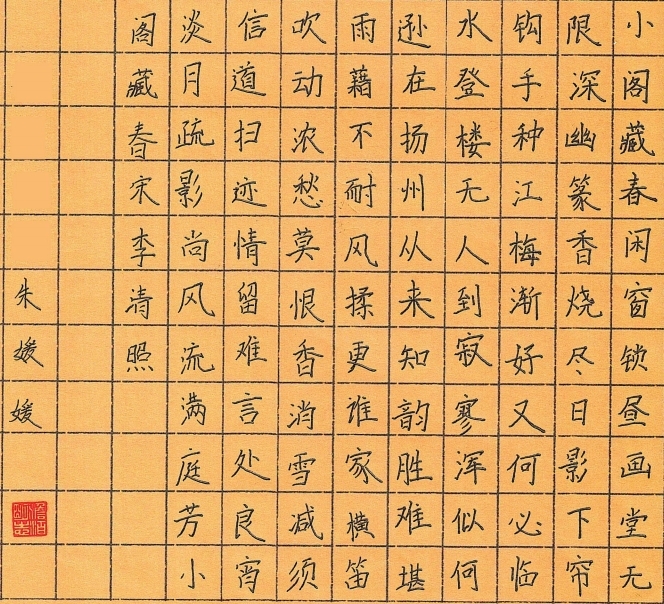 小阁藏春闲窗锁昼画堂无
限深幽篆香烧尽日影下帘
钩手种江梅渐好又何必临
水登楼无人到寂寥浑似何
逊在扬州从来知韵胜难堪
雨藉不耐风揉更谁家横笛
吹动浓愁莫恨香消雪减须
信道扫迹情留难言处良宵
淡月疏影尚风流满庭芳小
阁藏春宋李清照
朱媛媛